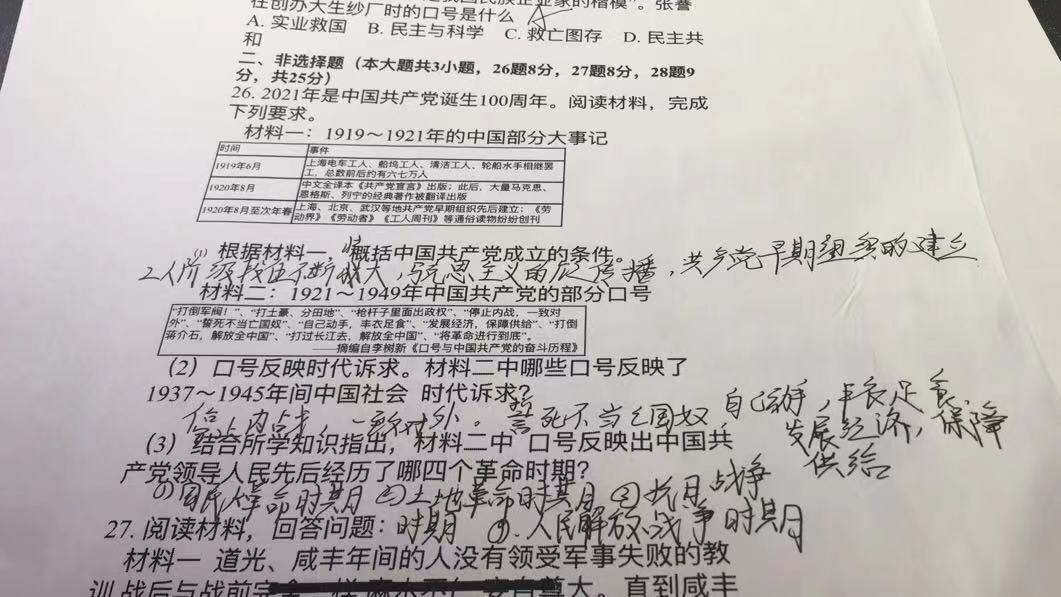 我国民族企业家的楷模”。张謇
在创办大生纱厂时的口号是什么 A
A. 实业救国 B. 民主与科学 C. 救亡图存 D. 民主共
和
二、非选择题（本大题共3小题，26题8分，27题8分，28题9
分，共25分）
26. 2021年是中国共产党诞生100周年。阅读材料，完成
下列要求。
材料一：1919～1921年的中国部分大事记
时间 事件
1919年6月 上海电车工人、船坞工人、清洁工人、轮船水手相继罢
工，总数前后约有六七万人
1920年8月 中文全译本《共产党宣言》出版；此后，大量马克思、
恩格斯、列宁的经典著作被翻译出版
1920年8月至次年春 上海、北京、武汉等地共产党早期组织先后建立；《劳
动界》《劳动者》《工人周刊》等通俗读物纷纷创刊
(1) 根据材料一，概括中国共产党成立的条件。
工人阶级队伍不断壮大，马克思主义的广泛传播，共产党早期组织的建立
材料二：1921～1949年中国共产党的部分口号
“打倒军阀！”、“打土豪、分田地”、“枪杆子里面出政权”、“停止内战，一致对
外”、“誓死不当亡国奴”、“自己动手，丰衣足食”、“发展经济，保障供给”、“打倒
蒋介石，解放全中国”、“打过长江去，解放全中国”、“将革命进行到底”。
——摘编自李树新《口号与中国共产党的奋斗历程》
（2）口号反映时代诉求。材料二中哪些口号反映了
1937～1945年间中国社会 时代诉求？
停止内战，一致对外。誓死不当亡国奴，自己动手，丰衣足食，
发展经济，保障
供给
（3）结合所学知识指出，材料二中 口号反映出中国共
产党领导人民先后经历了哪四个革命时期？
①国民大革命时期 ②土地革命时期 ③抗日战争
时期 ④人民解放战争时期
27. 阅读材料，回答问题：
材料一 道光、咸丰年间的人没有领受军事失败的教
训 战后与战前完全一样 麻木不仁 妄自尊大。直到咸丰